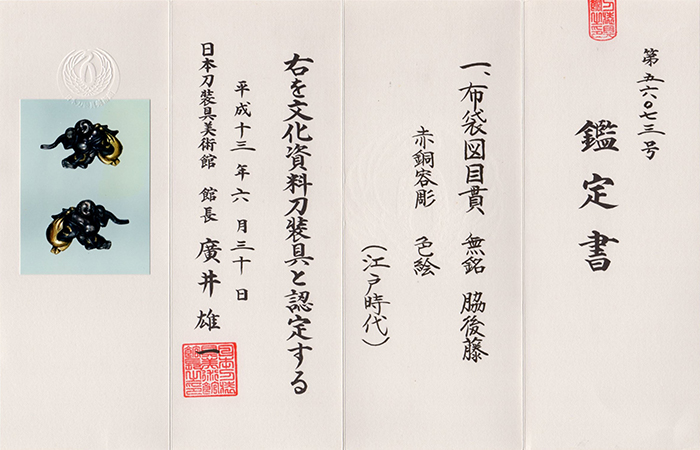 第五六〇七三号
鑑定書
一、布袋図目貫 無銘 脇後藤
赤銅容彫 色絵
（江戸時代）
右を文化資料刀装具と認定する
平成十三年六月三十日
日本刀装具美術館 館長 廣井雄一